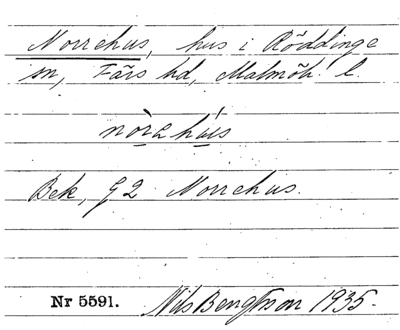 Norrehus, hus i Röddinge
sn, Färs hd, Malmöh. l.
nòrəhús
Bek, G2 Norrehus.
Nr 5591. Nils Bengtsson 1935.